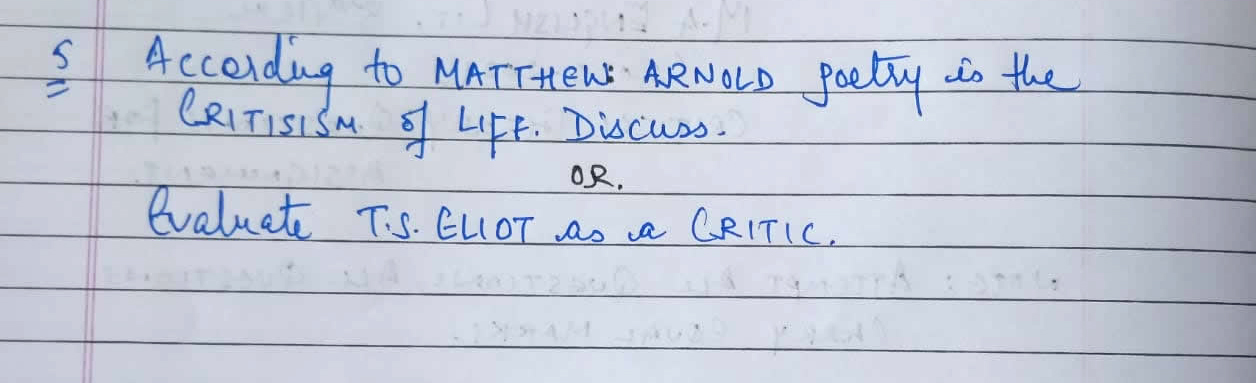 5 According to MATTHEW ARNOLD poetry is the
CRITISISM of LIFE. Discuss.
OR.
Evaluate T.S. ELIOT as a CRITIC.